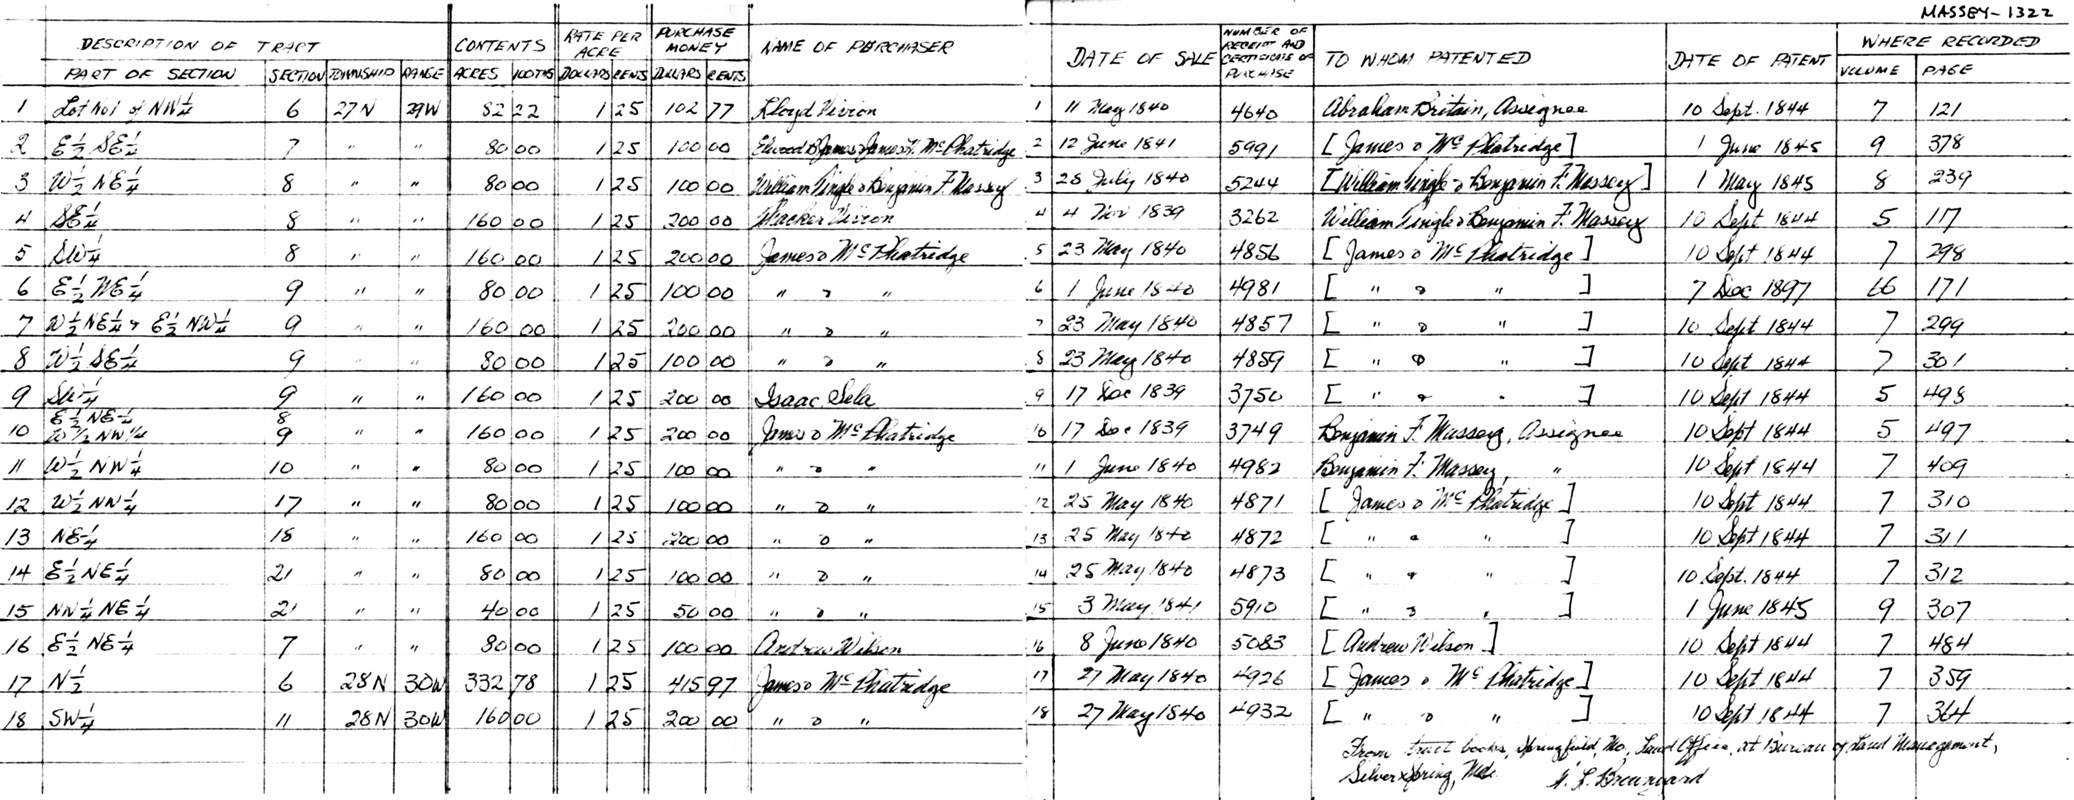 MASSEY-1322
DESCRIPTION OF TRACT CONTENTS RATE PER ACRE PURCHASE MONEY NAME OF PURCHASER DATE OF SALE NUMBER OF RECEIPT AND CERTIFICATE OF PURCHASE TO WHOM PATENTED DATE OF PATENT WHERE RECORDED
PART OF SECTION SECTION TOWNSHIP RANGE ACRES 100THS DOLLARS CENTS DOLLARS CENTS VOLUME PAGE
1 Lot No 1 of NW¼ 6 27N 29W 82 22 1 25 102 77 Lloyd Vivion 1 11 May 1840 4640 Abraham Britain, Assignee 10 Sept. 1844 7 121
2 E½ SE¼ 7 " " 80 00 1 25 100 00 James F. McPhatridge 2 12 June 1841 5991 [James McPhatridge] 1 June 1845 9 378
3 W½ NE¼ 8 " " 80 00 1 25 100 00 William Tingle & Benjamin F. Massey 3 28 July 1840 5244 [William Tingle & Benjamin F. Massey] 1 May 1845 8 239
4 SE¼ 8 " " 160 00 1 25 200 00 Thacker Vivion 4 4 Nov 1839 3262 William Tingle & Benjamin F. Massey 10 Sept 1844 5 117
5 SW¼ 8 " " 160 00 1 25 200 00 James o McPhatridge 5 23 May 1840 4856 [James o McPhatridge] 10 Sept 1844 7 298
6 E½ NE¼ 9 " " 80 00 1 25 100 00 " o " 6 1 June 1840 4981 [ " o " ] 7 Dec 1897 171
7 W½ NE¼ & E½ NW¼ 9 " " 160 00 1 25 200 00 " o " 7 23 May 1840 4857 [ " o " ] 10 Sept 1844 7 299
8 W½ SE¼ 9 " " 80 00 1 25 100 00 " o " 8 23 May 1840 4859 [ " o " ] 10 Sept 1844 7 301
9 SW¼ 9 " " 160 00 1 25 200 00 Isaac Sela 9 17 Dec 1839 3750 [ " o " ] 10 Sept 1844 5 498
E½ NE¼ 8
10 W½ NW¼ 9 " " 160 00 1 25 200 00 James o McPhatridge 10 17 Dec 1839 3749 Benjamin F. Massey, Assignee 10 Sept 1844 5 497
11 W½ NW¼ 10 " " 80 00 1 25 100 00 " o " 11 1 June 1840 4982 Benjamin F. Massey, " 10 Sept 1844 7 409
12 W½ NW¼ 17 " " 80 00 1 25 100 00 " o " 12 25 May 1840 4871 [James o McPhatridge] 10 Sept 1844 7 310
13 NE¼ 18 " " 160 00 1 25 200 00 " o " 13 25 May 1840 4872 [ " o " ] 10 Sept 1844 7 311
14 E½ NE¼ 21 " " 80 00 1 25 100 00 " o " 14 25 May 1840 4873 [ " o " ] 10 Sept. 1844 7 312
15 NW¼ NE¼ 21 " " 40 00 1 25 50 00 " o " 15 3 May 1841 5910 [ " o " ] 1 June 1845 9 307
16 E½ NE¼ 7 " " 80 00 1 25 100 00 Andrew Wilson 16 8 June 1840 5083 [Andrew Wilson] 10 Sept 1844 7 484
17 N½ 6 28N 30W 332 78 1 25 415 97 James o McPhatridge 17 27 May 1840 4926 [James o McPhatridge] 10 Sept 1844 7 359
18 SW¼ 11 28N 30W 160 00 1 25 200 00 " o " 18 27 May 1840 4932 [ " o " ] 10 Sept 1844 7 364
From tract books, Springfield, Mo, Land Office, at Bureau of Land Management,
Silver Spring, Md.